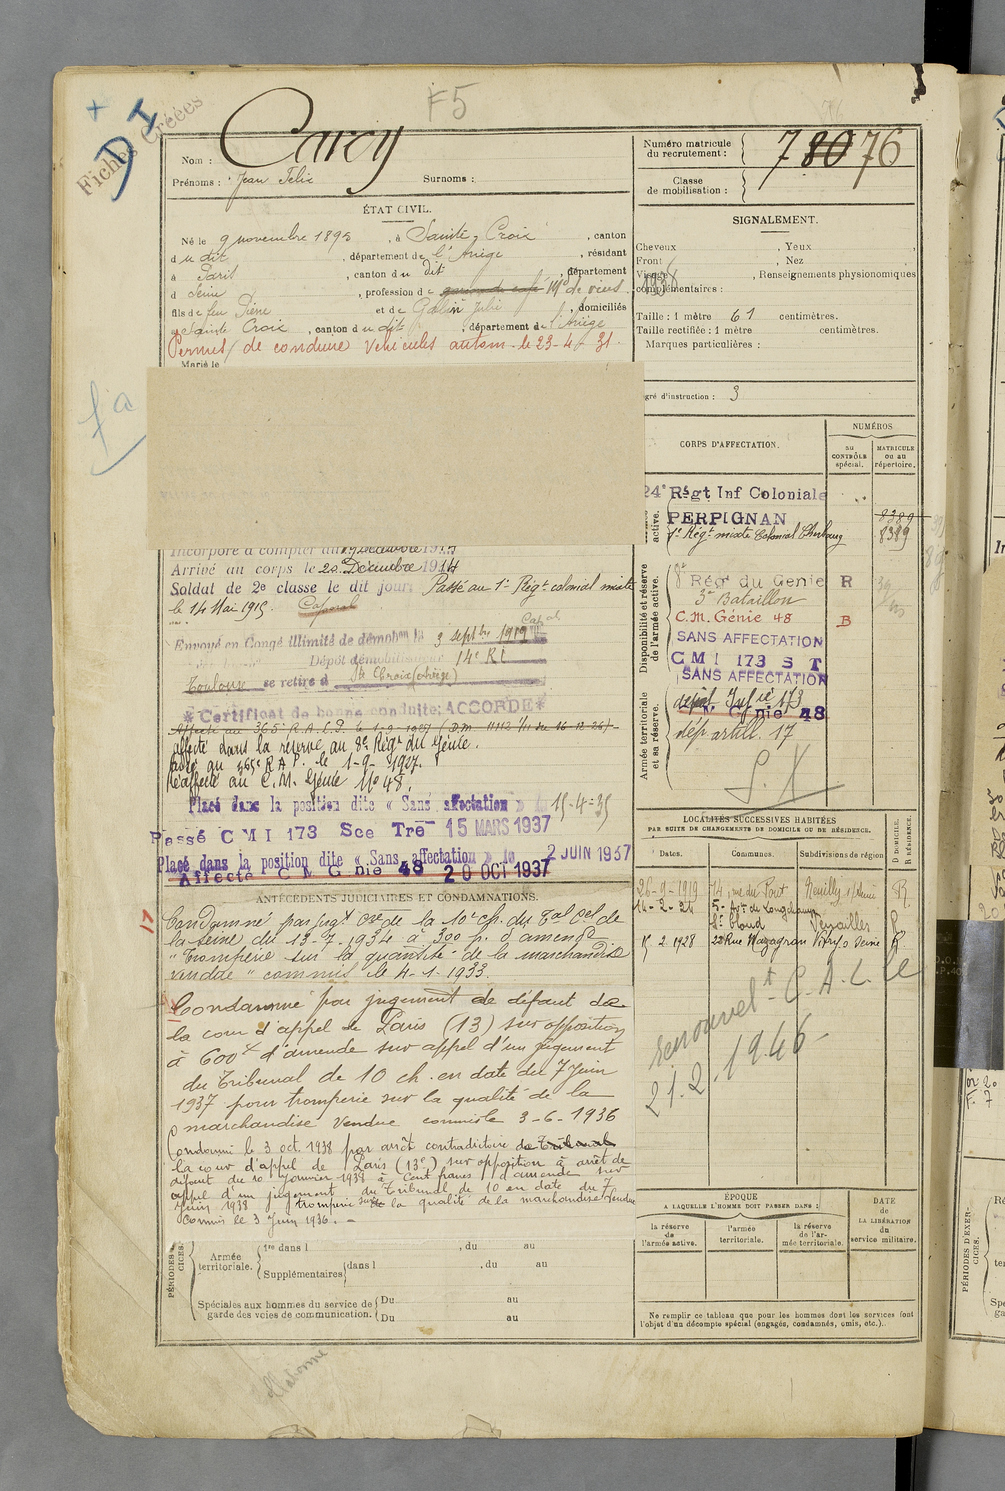 F5
Fiches Créées
D I
Nom : Caroy
Prénoms : Jean Felix Surnoms :
Numéro matricule du recrutement : 7 80 76
Classe de mobilisation :
ÉTAT CIVIL.
Né le 9 novembre 1895, à Sainte Croix, canton
du dit, département de l'Ariège, résidant
à Paris, canton du dit, département
d Seine, profession de garçon de café Md de vins.
fils de feu Pierre et de Galin Julie, domiciliés
à Sainte Croix, canton du dit, département de l'Ariège
Permis de conduire véhicules autom. le 23-4-31.
Marié le
SIGNALEMENT.
Cheveux , Yeux ,
Front , Nez ,
Visage , Renseignements physionomiques
complémentaires :
1936
Taille : 1 mètre 61 centimètres.
Taille rectifiée : 1 mètre centimètres.
Marques particulières :
gré d'instruction : 3
fa
Incorporé à compter du 19 décembre 1914
Arrivé au corps le 20 Décembre 1914
Soldat de 2e classe le dit jour. Passé au 1er Régt colonial mixte
le 14 Mai 1915. Caporal
Envoyé en Congé illimité de démobon le 3 septbre 1919
Dépôt démobilisateur 14e RI
Toulouse se retire à Ste Croix (Ariège)
*Certificat de bonne conduite: ACCORDÉ*
Affecté au 365e R.A.P. le 1-9-1927 (D.M. 11112 1/11 du 16-12-26)
affecté dans la réserve au 8e Régt du Génie.
passé au 365e R A P. le 1-9-1927.
Réaffecté au C.M. Génie No 48.
Placé dans la position dite « Sans affectation » 15-4-35
Passé C M I 173 Sce Tre 15 MARS 1937
Placé dans la position dite « Sans affectation » le 2 JUIN 1937
Affecté C M Génie 48 20 OCT 1937
CORPS D'AFFECTATION.
NUMÉROS
au CONTRÔLE spécial.
MATRICULE ou au répertoire.
active.
24e Régt Inf Coloniale
PERPIGNAN 8389
1er Régt mixte Colonial Cherbourg 8389
Disponibilité et réserve de l'armée active.
8e Régt du Genie R
3e Bataillon
C.M. Génie 48 B
SANS AFFECTATION
C M I 173 S T
SANS AFFECTATION
Armée territoriale et sa réserve.
dépôt Infie 173
C M Génie 48
dép. artill. 17
S.X
LOCALITÉS SUCCESSIVES HABITÉES
PAR SUITE DE CHANGEMENTS DE DOMICILE OU DE RÉSIDENCE.
D DOMICILE.
R RÉSIDENCE.
Dates. Communes. Subdivisions de région
26-9-1919 14, rue du Pont Neuilly s/Seine R.
14-2-24 5, Av. de Longchamp
St Cloud Versailles R
15.2.1928 22 Rue Mazagran Vitry s Seine R.
renouvelt C.A.L. le
21.2.1946
ANTÉCÉDENTS JUDICIAIRES ET CONDAMNATIONS.
Condamné par jugt Ore de la 10e ch. du Tal Cel de
la Seine du 13-7-1934 à 300 f. d'amende
"Tromperie sur la quantité de la marchandise
vendue" commis le 4-1-1933.
Condamné par jugement de défaut de
la cour d'appel de Paris (13) sur opposition
à 600f d'amende sur appel d'un jugement
du Tribunal de 10 ch. en date du 7 Juin
1937 pour tromperie sur la qualité de la
marchandise vendue commis le 3-6-1936
Condamné le 3 oct. 1938 par arrêt contradictoire de Tribunal
la cour d'appel de Paris (13e) sur opposition à arrêt de
défaut du 10 Janvier 1938 à Cent francs d'amende sur
appel d'un jugement du Tribunal de 10 en date du 7
Juin 1938 tromperie sur la qualité de la marchandise vendue
Commis le 3 Juin 1936. -
PÉRIODES D'EXERCICES.
Armée territoriale.
1re dans l , du au
Supplémentaires dans l , du au
Spéciales aux hommes du service de garde des voies de communication.
Du au
Du au
ÉPOQUE
A LAQUELLE L'HOMME DOIT PASSER DANS :
la réserve de l'armée active.
l'armée territoriale.
la réserve de l'armée territoriale.
DATE de LA LIBÉRATION du service militaire.
Ne remplir ce tableau que pour les hommes dont les services font
l'objet d'un décompte spécial (engagés, condamnés, omis, etc.).